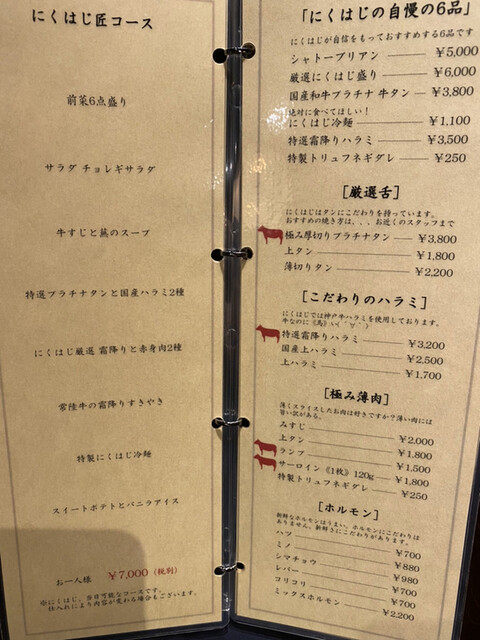 にくはじ匠コース
前菜6点盛り
サラダ チョレギサラダ
牛すじと葱のスープ
特選プラチナタンと国産ハラミ2種
にくはじ厳選 霜降りと赤身肉2種
常陸牛の霜降りすきやき
特製にくはじ冷麺
スイートポテトとバニラアイス
お一人様 ¥7,000(税別)
※にくはじ、当日可能なコースです。
仕入れにより内容が変わる場合もございます。
「にくはじの自慢の6品」
にくはじが自信をもっておすすめする6品です
シャトーブリアン ¥5,000
厳選にくはじ盛り ¥6,000
国産和牛プラチナ 牛タン ¥3,800
絶対に食べてほしい!
にくはじ冷麺 ¥1,100
特選霜降りハラミ ¥3,500
特製トリュフネギダレ ¥250
[厳選舌]
にくはじはタンにこだわりを持っています。
おすすめの焼き方は、、、お近くのスタッフまで
極み厚切りプラチナタン ¥3,800
上タン ¥1,800
薄切りタン ¥2,200
[こだわりのハラミ]
にくはじでは神戸牛ハラミを使用しております。
特選霜降りハラミ ¥3,200
国産上ハラミ ¥2,500
上ハラミ ¥1,700
[極み薄肉]
薄くスライスしたお肉は好きですか?薄い肉には
旨い訳がある。
みすじ ¥2,000
上タン ¥1,800
ランプ ¥1,500
サーロイン《1枚》120g ¥1,800
特製トリュフネギダレ ¥250
[ホルモン]
新鮮なホルモンはうまい。ホルモンにこだわりは
ありません。新鮮さにこだわりがあります。
ハツ ¥700
ミノ ¥880
シマチョウ ¥980
レバー ¥700
コリコリ ¥700
ミックスホルモン ¥2,200